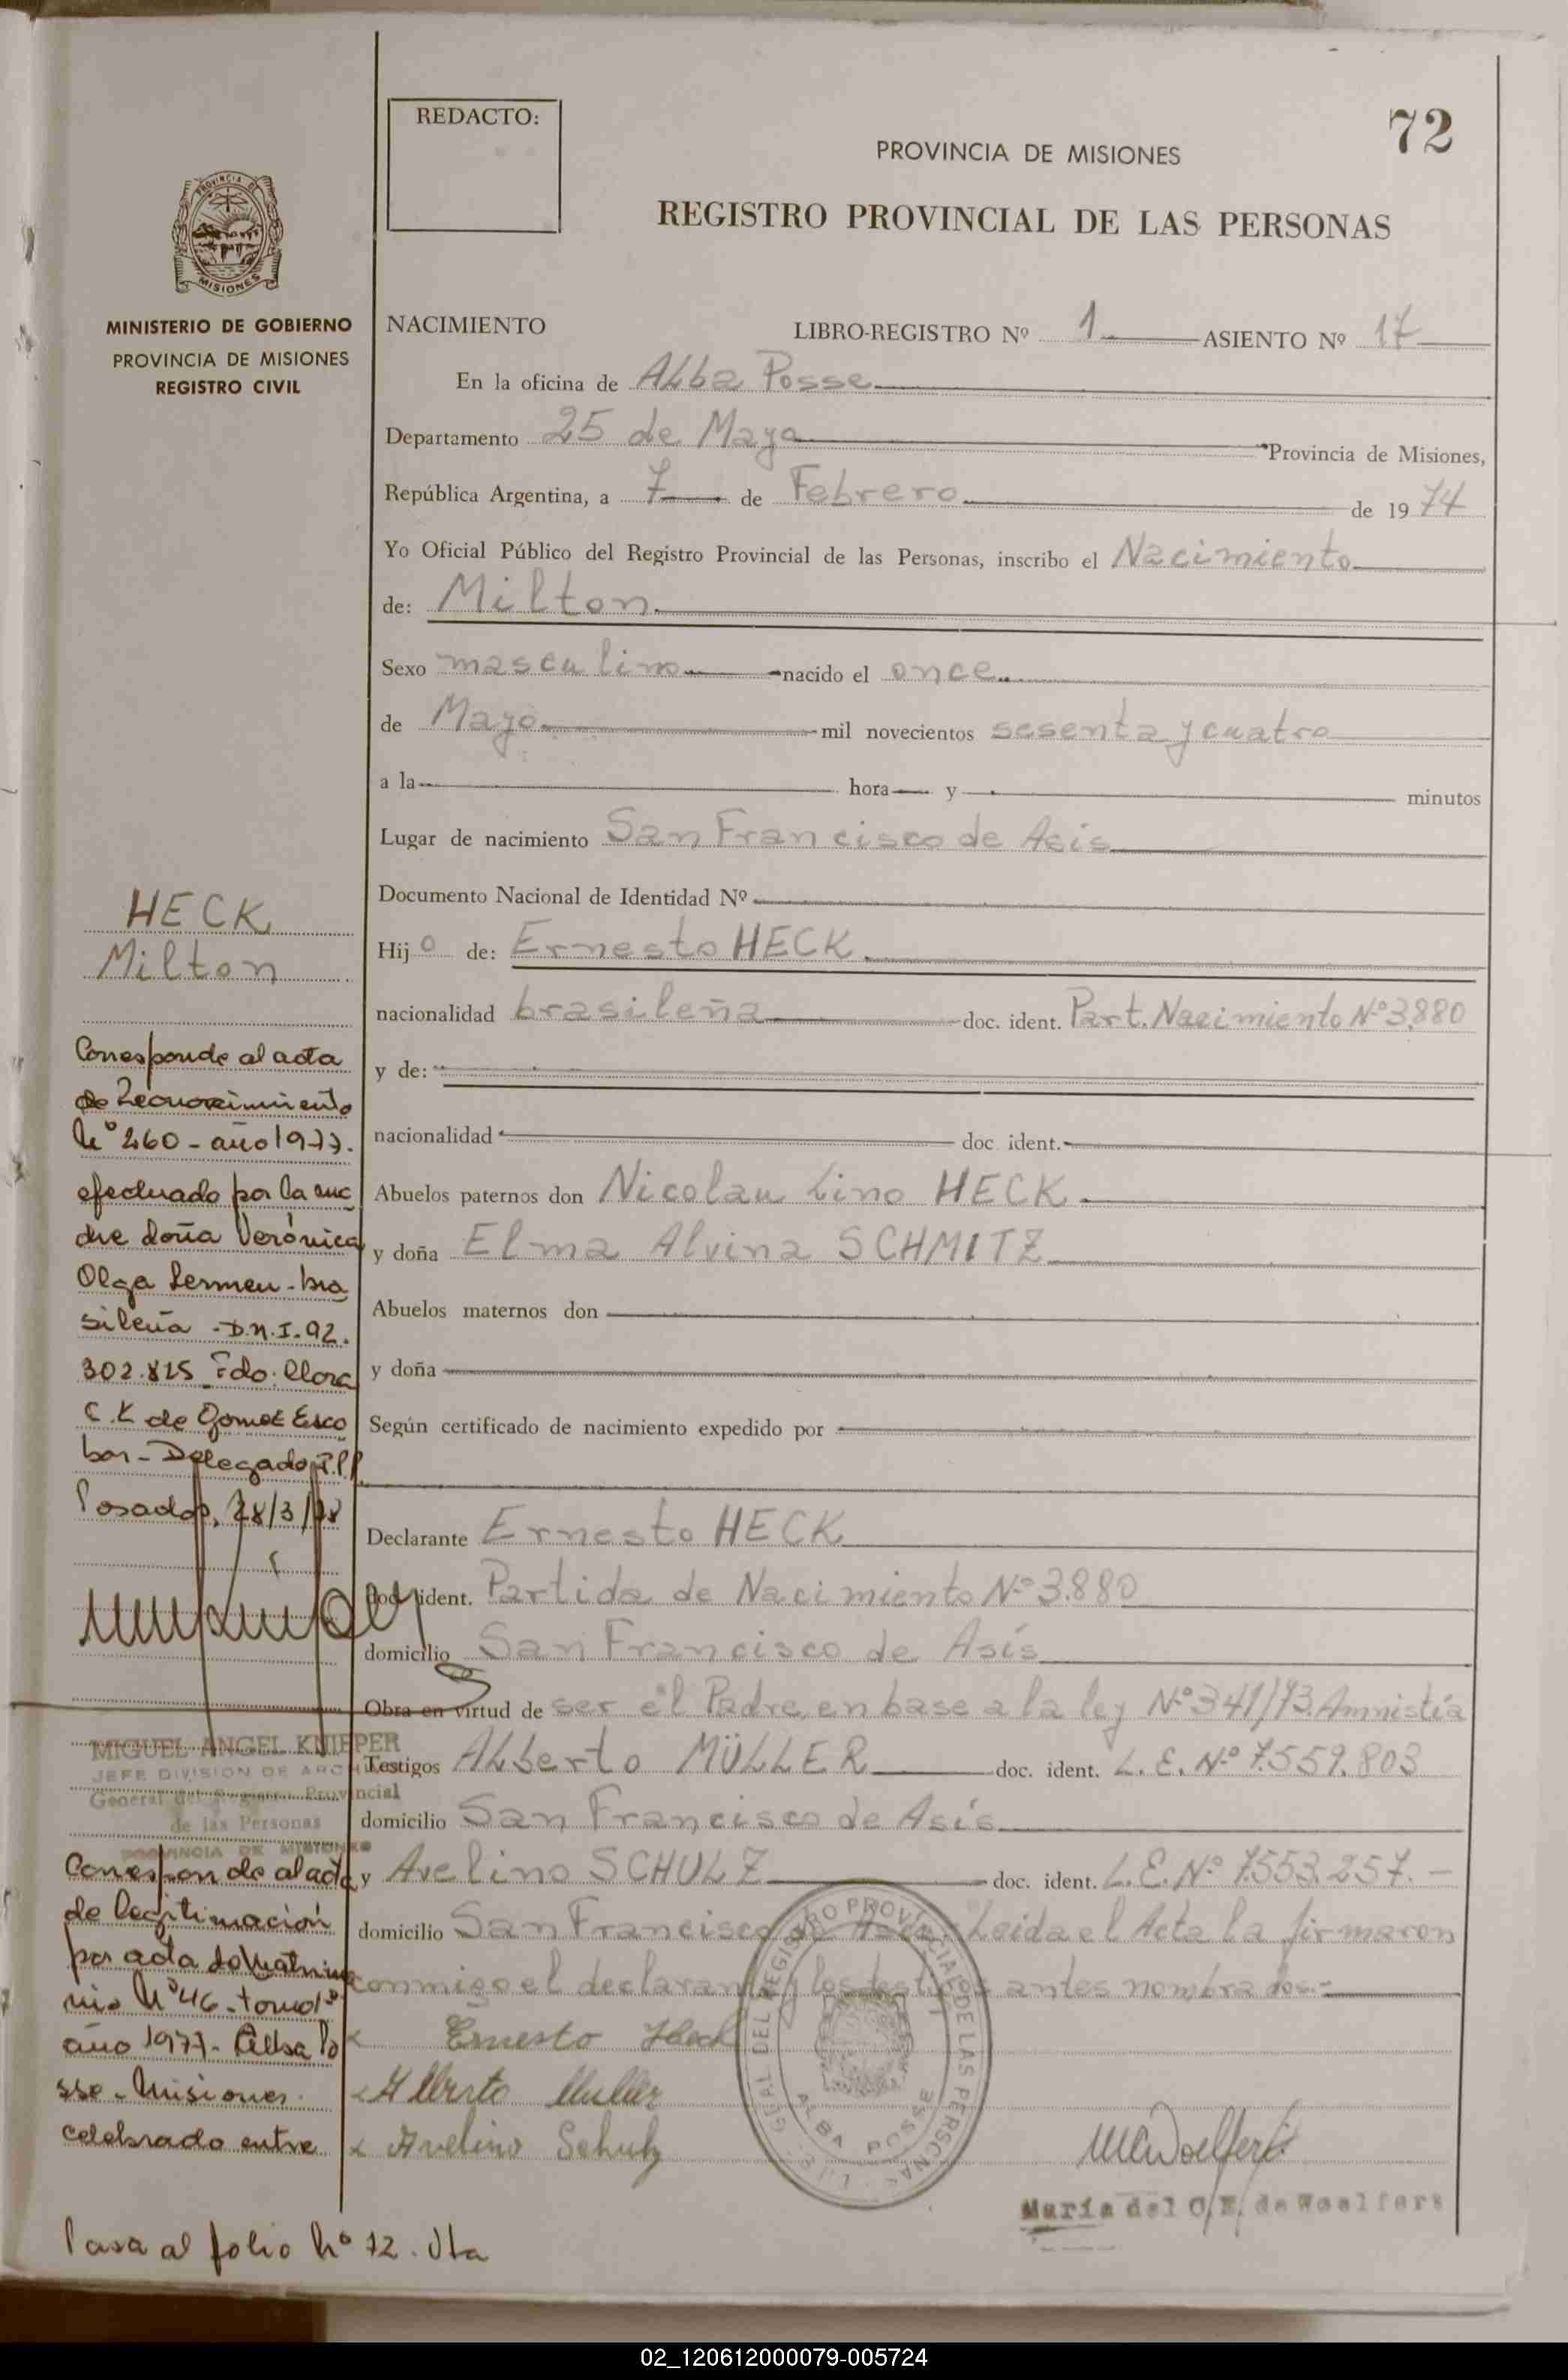 REDACTO:
72
PROVINCIA DE MISIONES
REGISTRO PROVINCIAL DE LAS PERSONAS
PROVINCIA DE
MISIONES
MINISTERIO DE GOBIERNO
PROVINCIA DE MISIONES
REGISTRO CIVIL
NACIMIENTO LIBRO-REGISTRO Nº 1 ASIENTO Nº 17
En la oficina de Alba Posse
Departamento 25 de Mayo Provincia de Misiones,
República Argentina, a 7 de Febrero de 1974
Yo Oficial Público del Registro Provincial de las Personas, inscribo el Nacimiento
de: Milton
Sexo masculino nacido el once
de Mayo mil novecientos sesenta y cuatro
a la hora y minutos
Lugar de nacimiento San Francisco de Asis
Documento Nacional de Identidad Nº
Hijo de: Ernesto HECK
nacionalidad brasileña doc. ident. Part. Nacimiento Nº 3.880
y de:
nacionalidad doc. ident.
Abuelos paternos don Nicolau Lino HECK
y doña Elma Alvina SCHMITZ
Abuelos maternos don
y doña
Según certificado de nacimiento expedido por
Declarante Ernesto HECK
Doc. ident. Partida de Nacimiento Nº 3.880
domicilio San Francisco de Asís
Obra en virtud de ser el Padre, en base a la ley Nº 341/73. Amnistía
Testigos Alberto MÜLLER doc. ident. L.E. Nº 7.559.803
domicilio San Francisco de Asís
y Avelino SCHULZ doc. ident. L.E. Nº 7.553.257.-
domicilio San Francisco de Asís. Leida el Acta la firmaron
conmigo el declarante y los testigos antes nombrados.-
Ernesto Heck
Alberto Muller
Avelino Schulz
REGISTRO PROVINCIAL DE LAS PERSONAS
ALBA POSSE
Maria del C. E. de Woelfert
HECK
Milton
Corresponde al acta
de Reconocimiento
Nº 260 - año 1977.
efectuado por la ma
dre doña Verónica
Olga Lermen - bra
sileña - D.N.I. 92.
302.825 Fdo: Clora
C. K de Gomez Esco
bar - Delegado R.P.P.
Posadas, 28/3/78
MIGUEL ANGEL KNIEPER
JEFE DIVISION DE ARCH
General del Registro Provincial
de las Personas
PROVINCIA DE MISIONES
Corresponde al acta
de legitimación
por acta de Matrimo
nio Nº 46 - tomo 1º
año 1977 - Alba Po
sse - Misiones
celebrado entre
Pasa al folio Nº 72. Vta
02_120612000079-005724